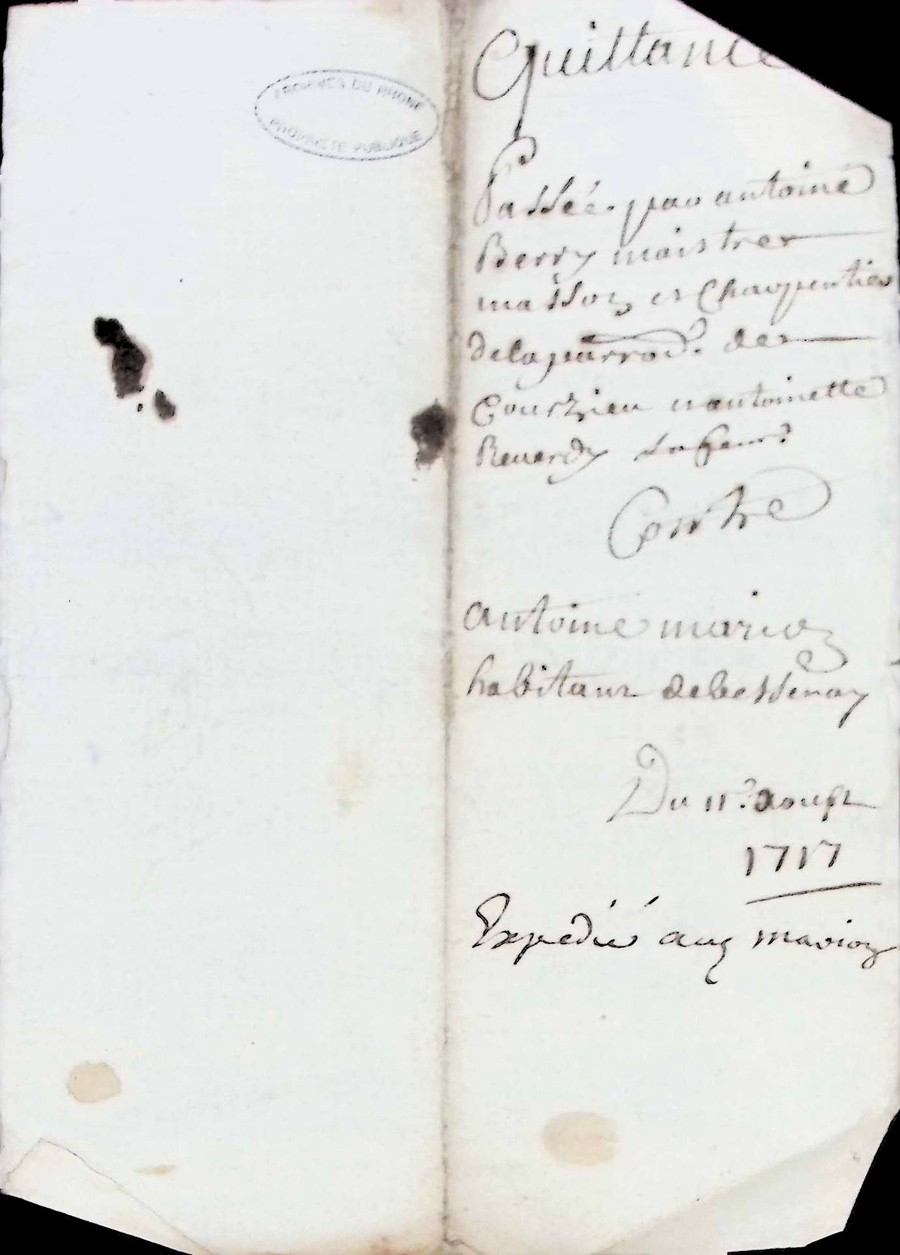 ARCHIVES DU RHONE
PROPRIÉTÉ PUBLIQUE
Quittance
Passée par antoine
Berry maistre
masson et Charpentier
de la parroi.e de
Courzieu et antoinette
Reuerdy sa fem.e
Contre
antoine marion
habitant de bessenay
Du 11.e aoust
1717
Expedié aud marion